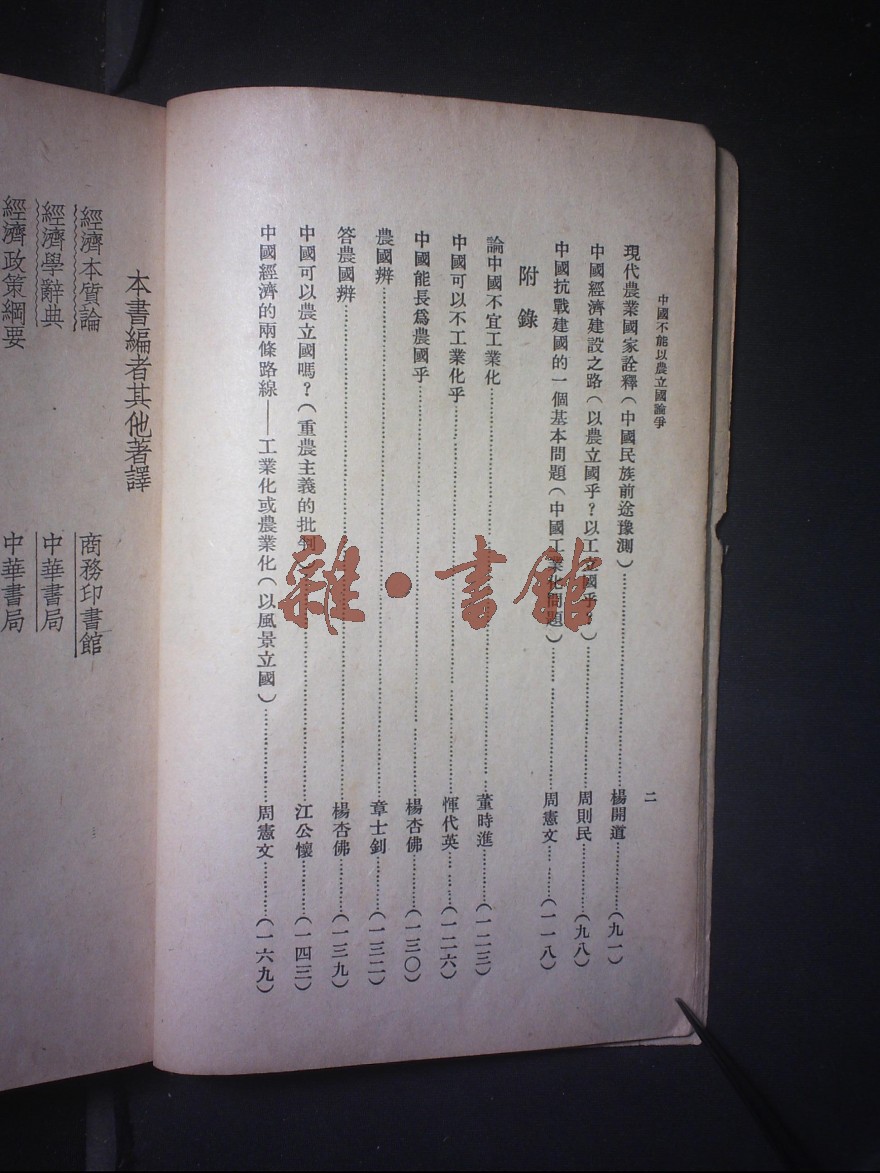 中國不能以農立國論爭
二
現代農業國家詮釋(中國民族前途豫測)……楊開道……(九一)
中國經濟建設之路(以農立國乎?以工立國乎?)……周則民……(九八)
中國抗戰建國的一個基本問題(中國工業化問題)……周憲文……(一一八)
附錄
論中國不宜工業化……董時進……(一二三)
中國可以不工業化乎……惲代英……(一二六)
中國能長爲農國乎……楊杏佛……(一三〇)
農國辨……章士釗……(一三二)
答農國辨……楊杏佛……(一三九)
中國可以農立國嗎?(重農主義的批判)……江公懷……(一四三)
中國經濟的兩條路線——工業化或農業化(以風景立國)……周憲文……(一六九)
本書編者其他著譯
經濟本質論 商務印書館
經濟學辭典 中華書局
經濟政策綱要 中華書局
雜·書館